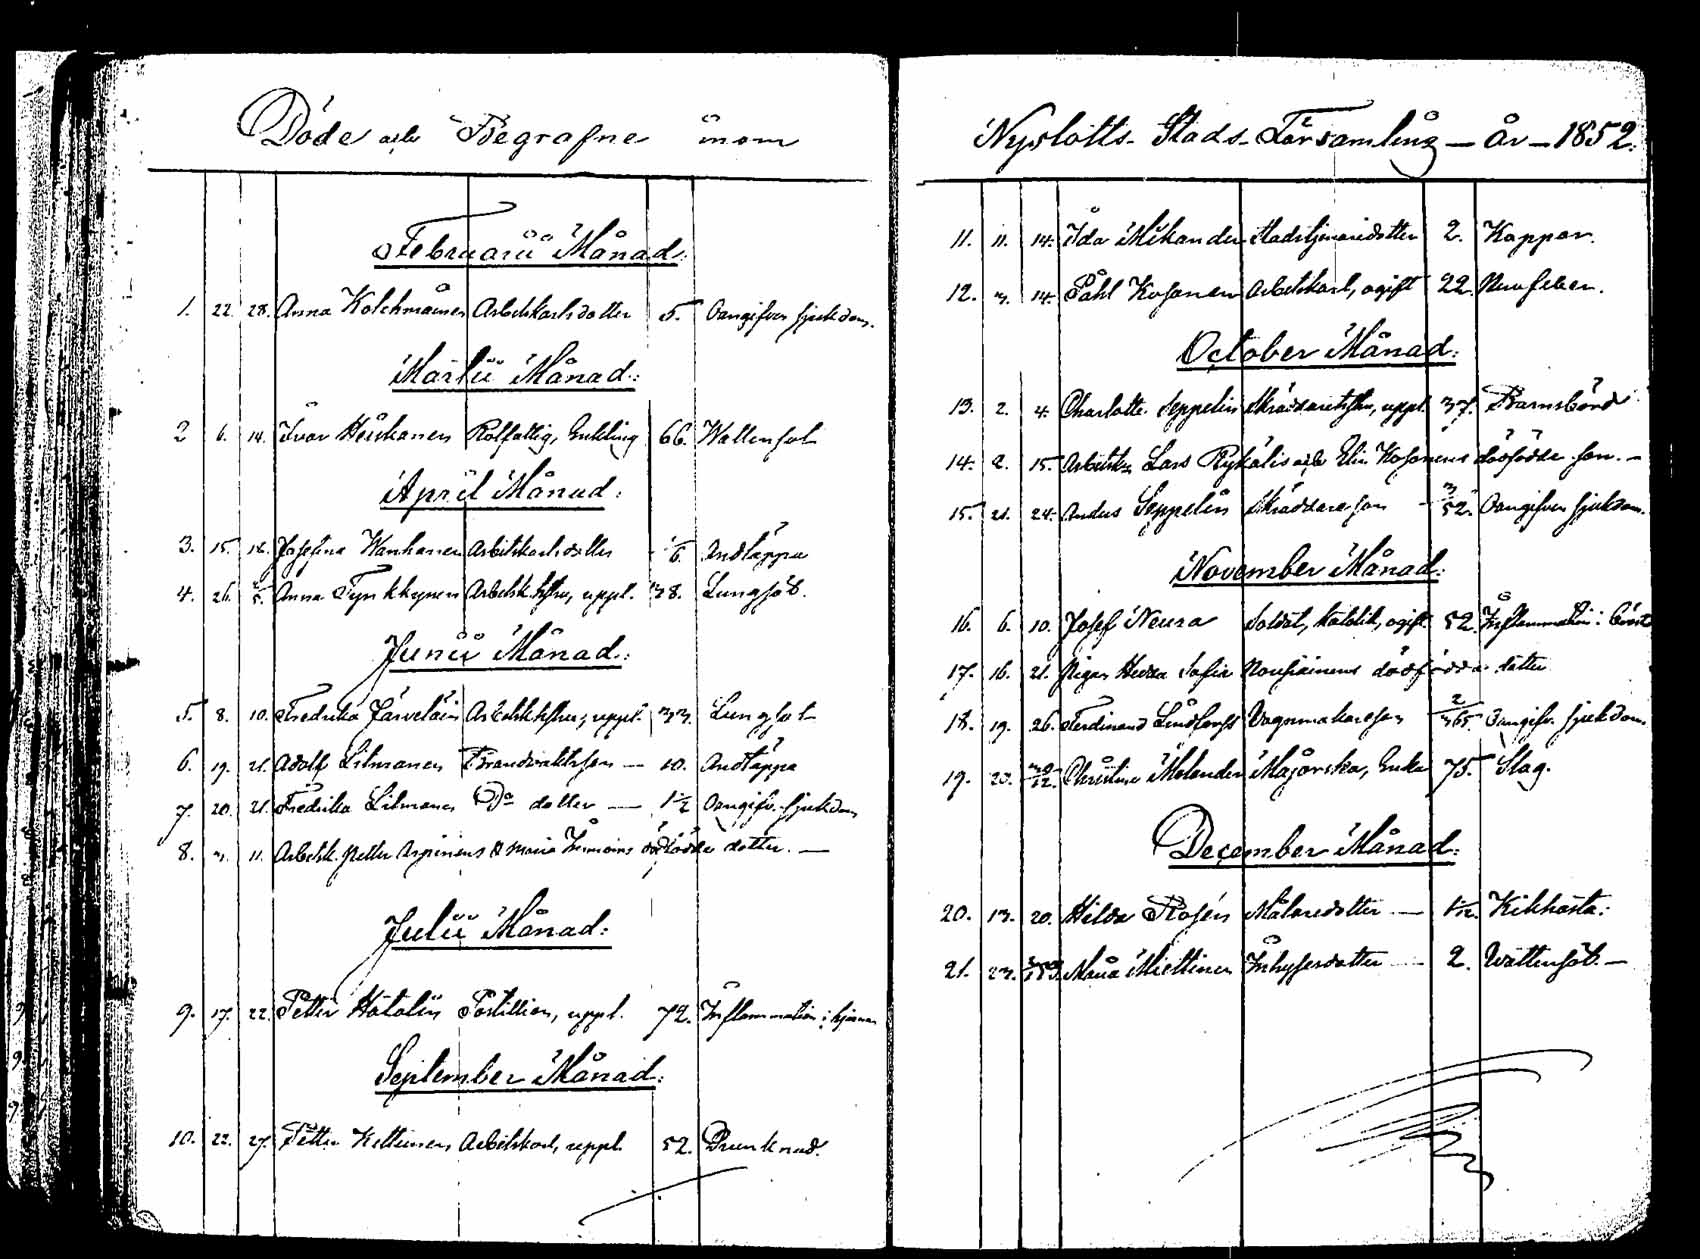 Döde och Begrafne inom
Februarii Månad:
1. 22. 28. Anna Kolehmainen Arbetskarlsdotter 5. Oangifven sjukdom.
Martii Månad:
2 6. 14. Ivar Heiskanen Rotfattig, Enkling 66. Wattensot
April Månad:
3. 15. 18. Josefina Wanhanen Arbetskarlsdotter Andtäppa
4. 26. 2/5. Anna Tynkkynen Arbetsk. hstru, uppl. 38. Lungsot.
Junii Månad:
5. 8. 10. Fredrika Järveläin Arbetsk. hstru, uppl. 33. Lungsot
6. 19. 21. Adolf Lilmanen Brandvaktsson — 10. Andtäppa
7. 20. 21. Fredrika Lilmanen Do dotter — 1 1/2 Oangifv. sjukdom
8. 3. 11. Arbetsk. Petter Arpiainens & Maria dödfödde dotter. —
Julii Månad:
9. 17. 22. Petter Hätälin Postillion, uppl. 72. Inflammation i hjernan
September Månad:
10. 22. 27. Petter Arbetskarl, uppl. 52. Drunknad.
Nyslotts - Stads - Församling — År — 1852.
11. 11. 14. Ida Mikander Stadstjenaredotter 2. Koppor.
12. 3. 14. Påhl Kosonen Arbetskarl, ogift 22. Nervfeber.
October Månad:
13. 2. 4. Charlotte Seppelin Skräddarehstru, uppl. 37. Barnsbörd
14. 2. 15. Arbetsk. Lars Rykälis och Elin Kosonens dödfödde son. —
15. 21. 24. Anders Seppelin Skräddareson 3/52. Oangifven sjukdom.
November Månad:
16. 6. 10. Josef Neura Soldat, katolik, ogift 52. Inflammation i bröst
17. 16. 21. Pigan Hedda Sofia Nousiainens dödfödda dotter
18. 19. 26. Ferdinand Lindfors Vagnmakareson 2/365. Oangifv. sjukdom
19. 20. 30/12. Christina Molander Majorska, Enka 75. Slag.
December Månad:
20. 13. 20. Hilda Rosén Målaredotter — 1/12. Kikhosta.
21. 23. Maria Miettinen Inhysesdotter — 2. Wattensot. —